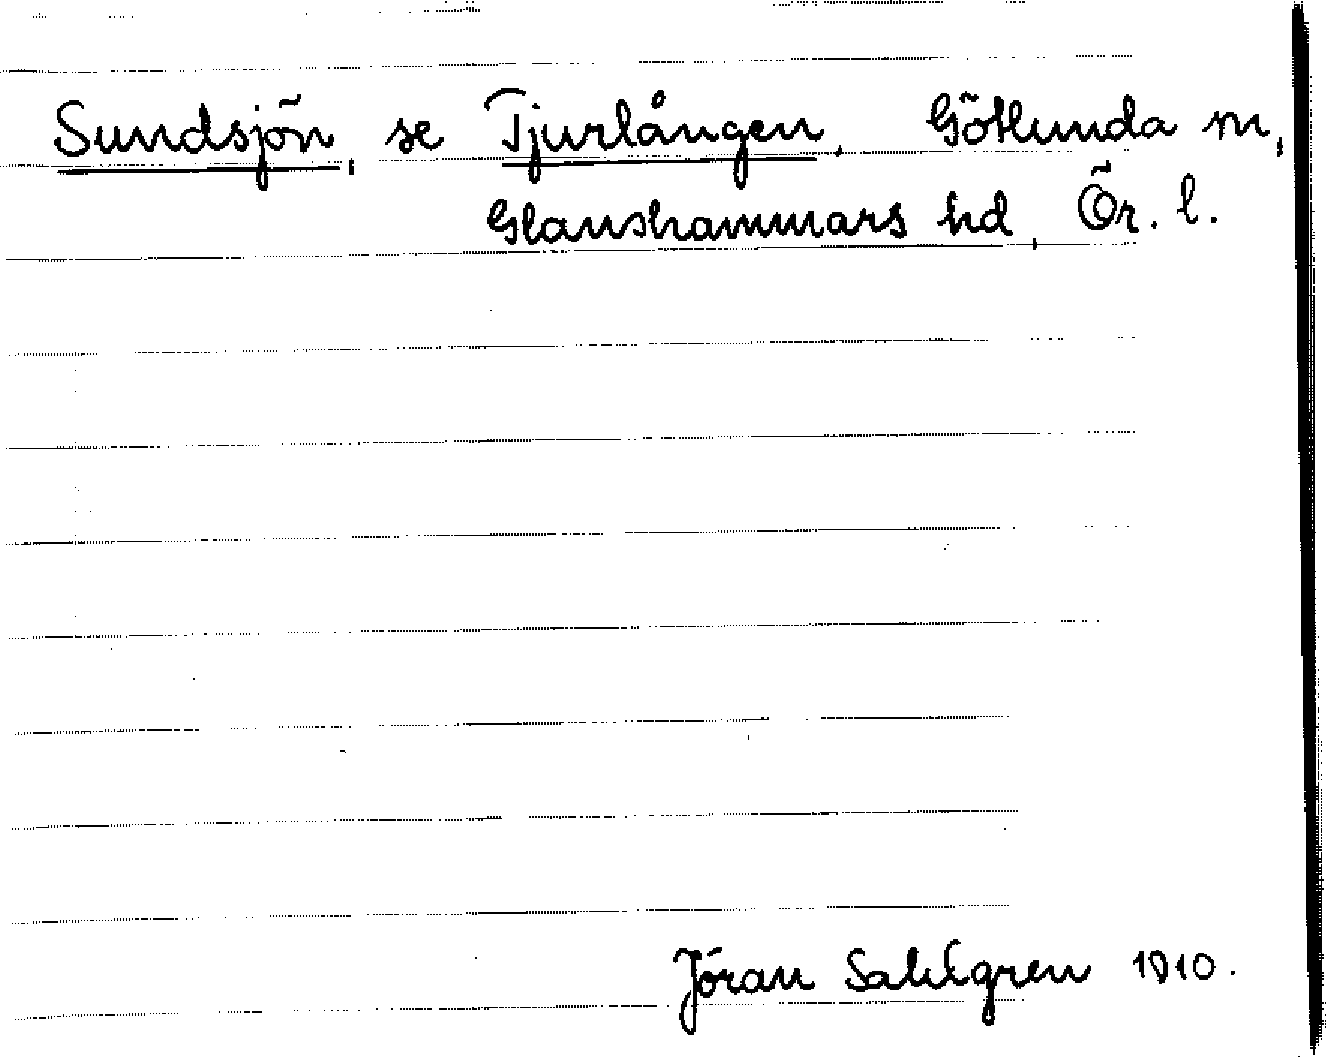 Sundsjön, se Tjurlången, Götlunda sn,
Glanshammars hd, Ör. l.
Jöran Sahlgren 1910.